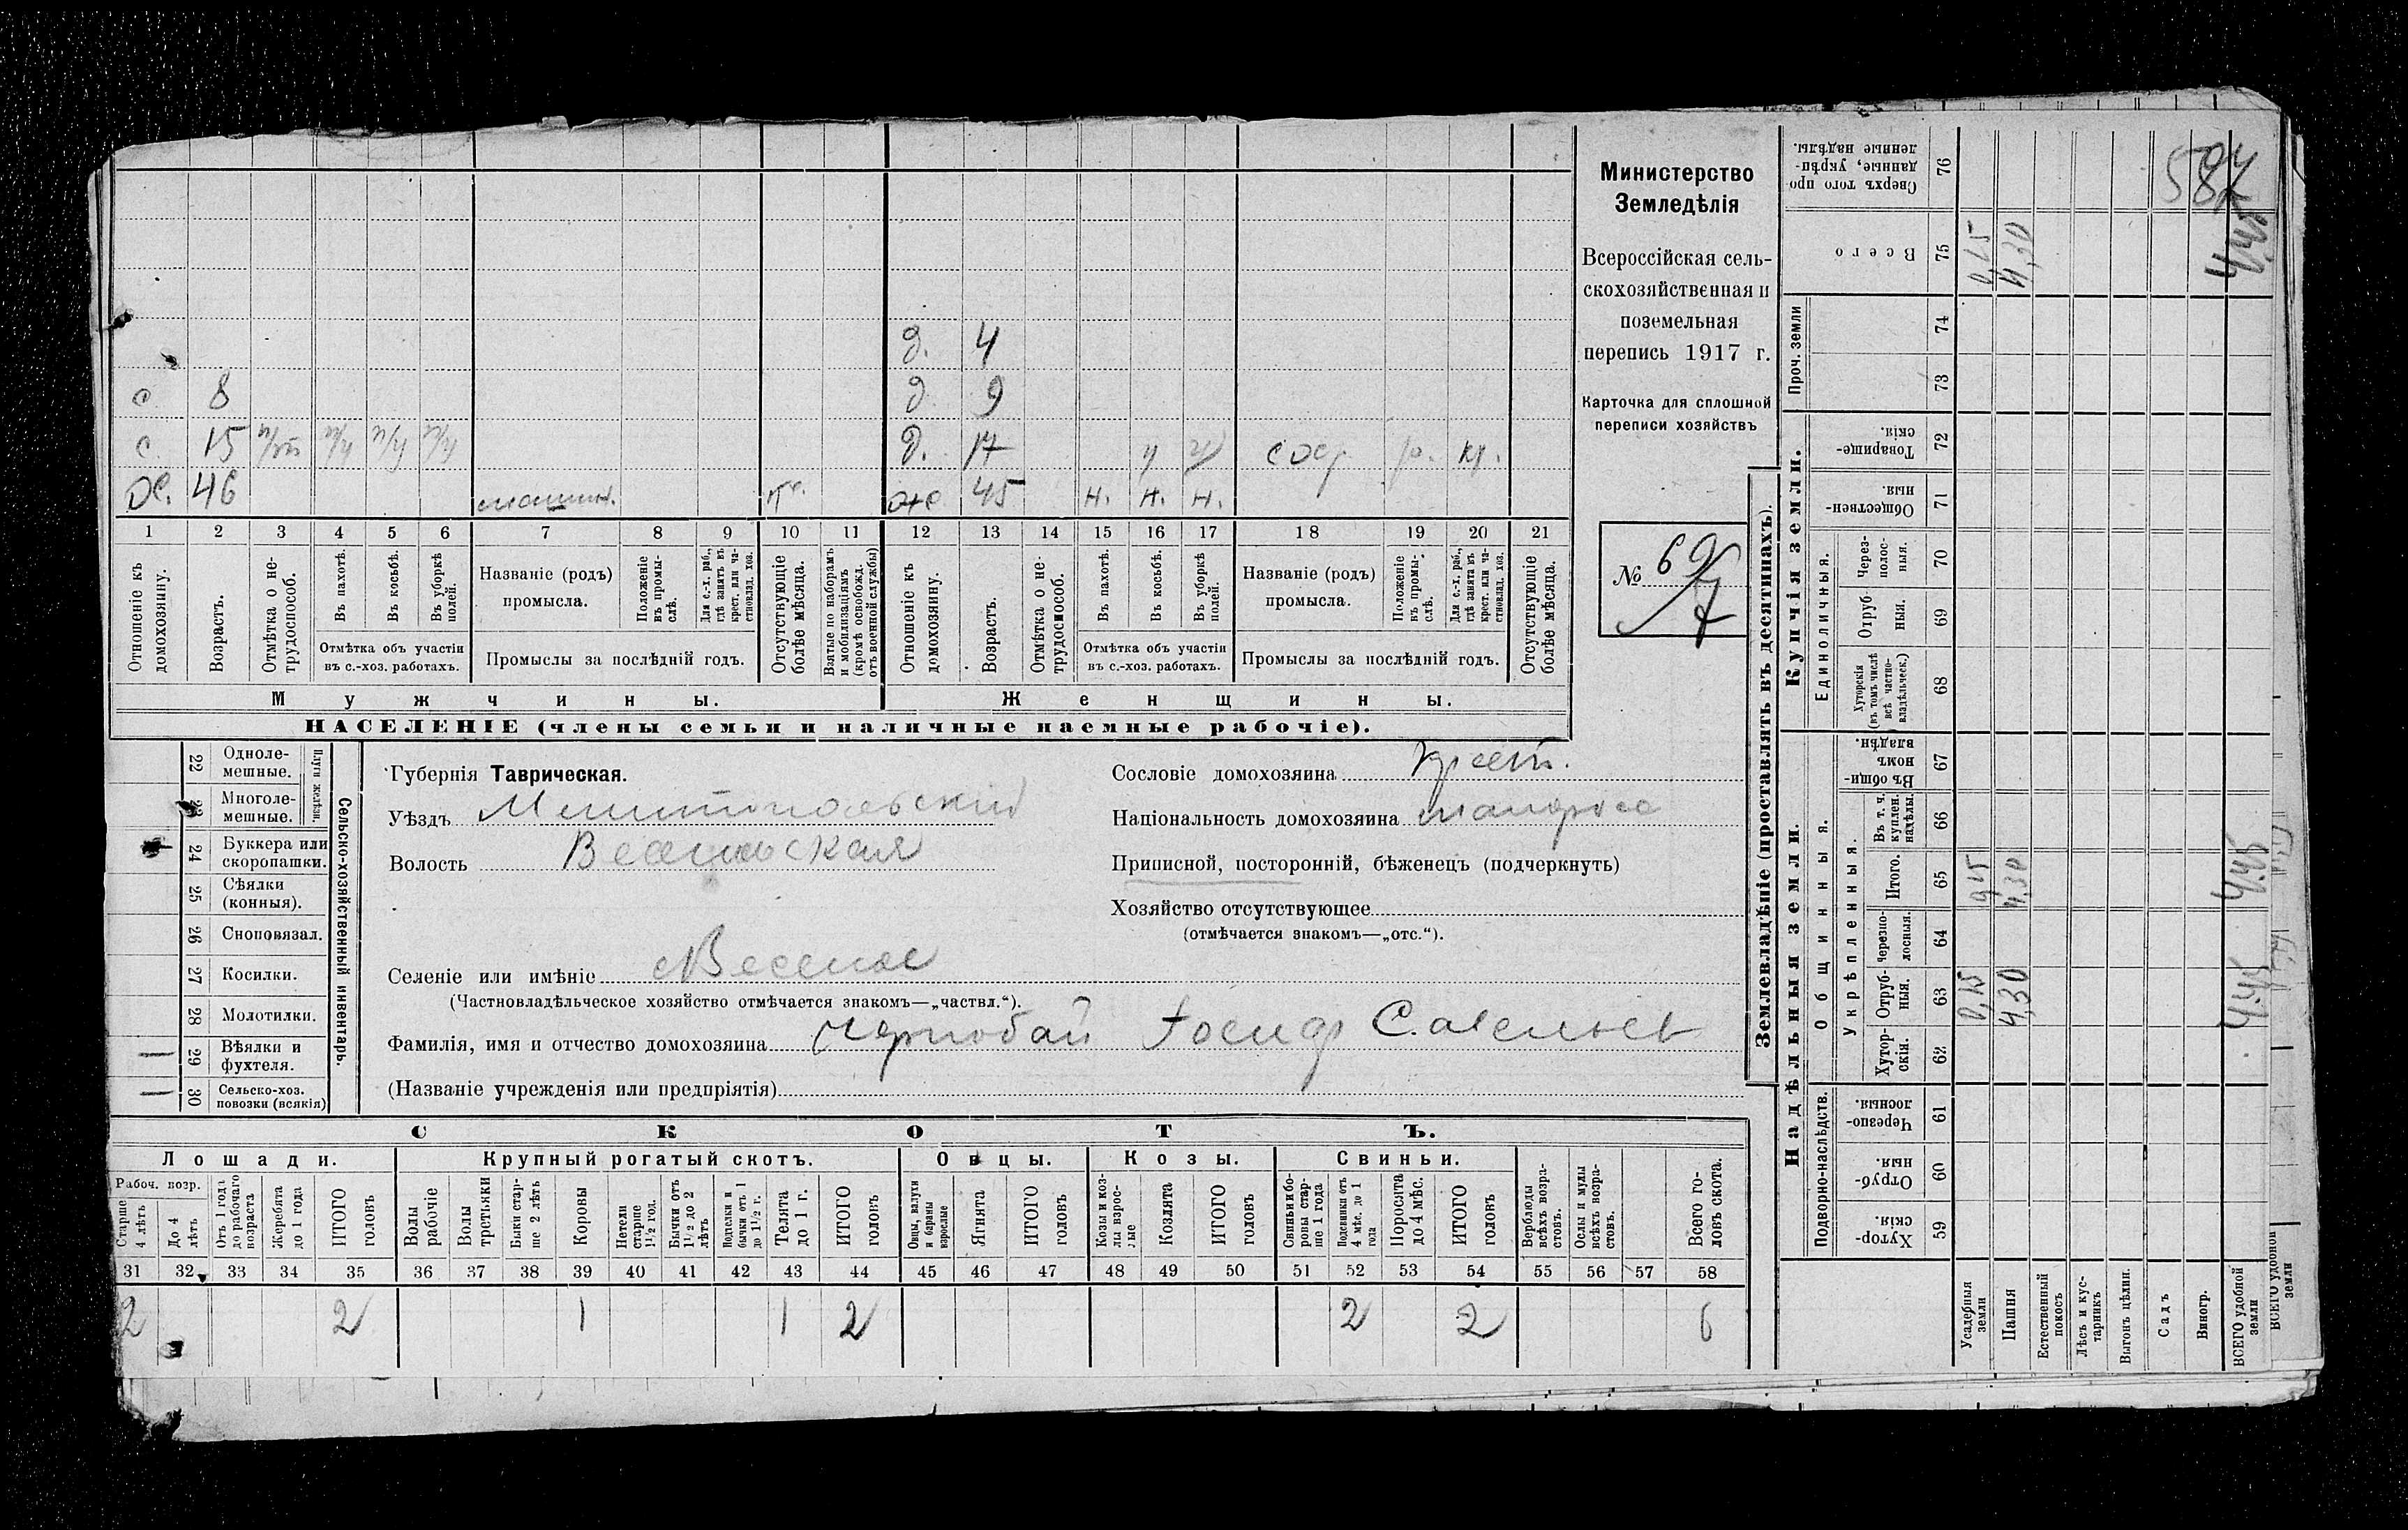 д. 4
с 8 д 9
с. 15 д. 17 р. кр.
46 машин. 45 н. н. н.
1 2 3 4 5 6 7 8 9 10 11 12 13 14 15 16 17 18 19 20 21
Отношеніе къ домохозяину.
Возрастъ.
Отмѣтка о нетрудоспособ.
Въ пахотѣ.
Въ косьбѣ.
Въ уборкѣ полей.
Отмѣтка объ участіи въ с.-хоз. работахъ.
Названіе (родъ) промысла.
Положеніе въ промыслѣ.
Для с.-х. раб., гдѣ занятъ въ крест. или частновлад. хоз.
Промыслы за послѣдній годъ.
Отсутствующіе болѣе мѣсяца.
Взятые по наборамъ и мобилизаціямъ (кромѣ освобожд. отъ военной службы)
Отношеніе къ домохозяину.
Возрастъ.
Отмѣтка о нетрудоспособ.
Въ пахотѣ.
Въ косьбѣ.
Въ уборкѣ полей.
Отмѣтка объ участіи въ с.-хоз. работахъ.
Названіе (родъ) промысла.
Положеніе въ промыслѣ.
Для с.-х. раб., гдѣ занята въ крест. или частновлад. хоз.
Промыслы за послѣдній годъ.
Отсутствующіе болѣе мѣсяца.
Мужчины.
Женщины.
НАСЕЛЕНІЕ (члены семьи и наличные наемные рабочіе).
Министерство
Земледѣлія
Всероссійская сель-
скохозяйственная и
поземельная
перепись 1917 г.
Карточка для сплошной
переписи хозяйствъ
№ 69
Сельско-хозяйственный инвентарь.
Плуги желѣзн.
22 Одноле-
мешные.
23 Многоле-
мешные.
24 Буккера или
скоропашки.
25 Сѣялки
(конныя).
26 Сноповязал.
27 Косилки.
28 Молотилки.
29 Вѣялки и
фухтеля.
30 Сельско-хоз.
повозки (всякія)
Губернія Таврическая.
Уѣздъ Мелитопольский
Волость Весельская
Селеніе или имѣніе Веселое
(Частновладѣльческое хозяйство отмѣчается знакомъ—„частвл.“).
Фамилія, имя и отчество домохозяина Чернобай Іосиф Савельев
(Названіе учрежденія или предпріятія)
Сословіе домохозяина крест.
Національность домохозяина малоросс
Приписной, посторонній, бѣженецъ (подчеркнуть)
Хозяйство отсутствующее
(отмѣчается знакомъ—„отс.“).
СКОТЪ.
Лошади. Крупный рогатый скотъ. Овцы. Козы. Свиньи.
Рабоч. возр.
Старше 4 лѣтъ
До 4 лѣтъ
Отъ 1 года до рабочаго возраста
Жеребята до 1 года
ИТОГО головъ
Волы рабочіе
Волы третьяки
Быки старше 2 лѣтъ
Коровы
Нетели старше 1½ год.
Бычки отъ 1½ до 2 лѣтъ
Подтелки и бычки отъ 1 до 1½ г.
Телята до 1 г.
ИТОГО головъ
Овцы, валухи и бараны взрослые
Ягнята
ИТОГО головъ
Козы и козлы взрослые
Козлята
ИТОГО головъ
Свиньи и боровы старше 1 года
Подсвинки отъ 4 мѣс. до 1 года
Поросята до 4 мѣс.
ИТОГО головъ
Верблюды всѣхъ возрастовъ.
Ослы и мулы всѣхъ возрастовъ.
Всего головъ скота.
31 32 33 34 35 36 37 38 39 40 41 42 43 44 45 46 47 48 49 50 51 52 53 54 55 56 57 58
2 2 1 1 2 2 2 6
Землевладѣніе (проставлять въ десятинахъ).
Надѣльныя земли.
Купчія земли.
Проч. земли
Подворно-наслѣдств.
Общинныя.
Укрѣпленныя.
Единоличныя.
Сверхъ того проданные, укрѣпленные надѣлы. 76
Всего 75 0,15 4,30 4,45
74
73
Товарищескія. 72
Общественныя. 71
Черезполосныя. 70
Отрубныя. 69
Хуторскія (въ томъ числѣ всѣ частновладѣльческ.) 68
Въ общинномъ владѣн. 67
Въ т. ч. куплен. надѣлы. 66
Итого. 65 0,15 4,30 4,45
Черезполосныя. 64
Отрубныя. 63 0,15 4,30 4,45
Хуторскія. 62
Черезполосныя. 61
Отрубныя. 60
Хуторскія. 59
Усадебныя земли
Пашня
Естественный покосъ
Лѣсъ и кустарникъ
Выгонъ цѣлин.
Садъ
Виногр.
ВСЕГО удобной земли
ВСЕГО удобной земли